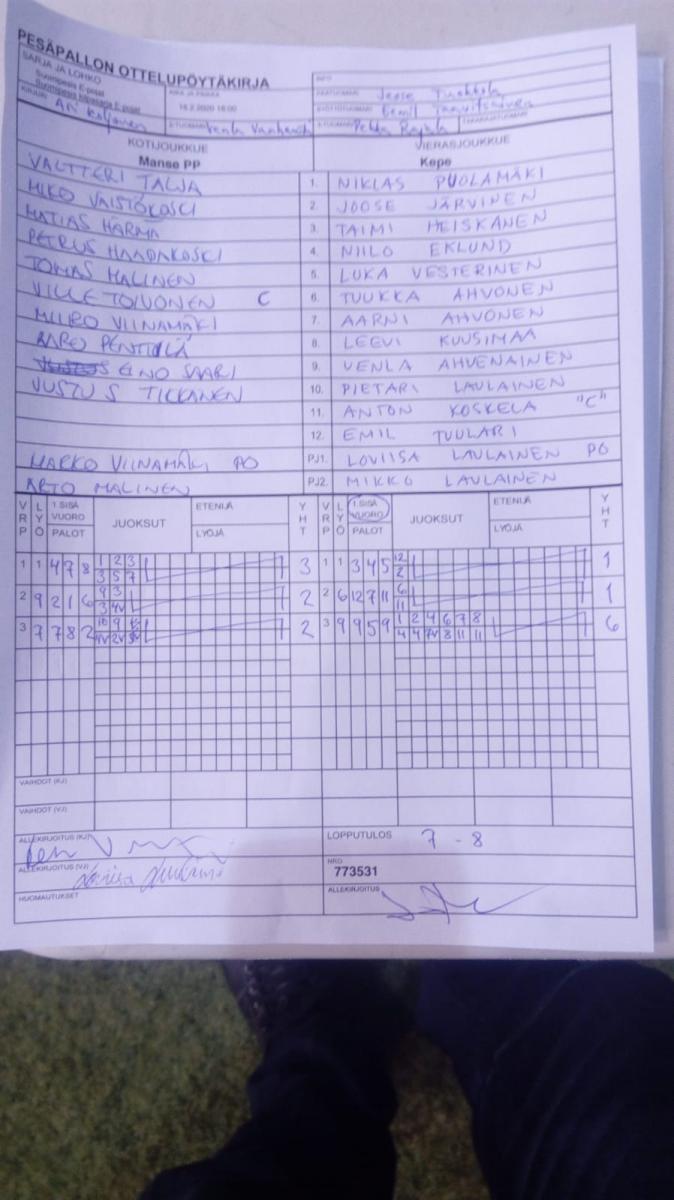 PESÄPALLON OTTELUPÖYTÄKIRJA
SARJA JA LOHKO
Suomipesis E-pojat
AIKA JA PAIKKA
16.2.2020 16:00
INFO
KIRJURI Ari Koljonen
Pekka Rajala
KOTIJOUKKUE VIERASJOUKKUE
Manse PP Kepe
VALTTERI TALJA 1. NIKLAS PUOLAMÄKI
MIKO VAISTÖKOSKI 2. JOOSE JÄRVINEN
MATIAS HÄRMÄ 3. TAIMI HEISKANEN
PETRUS HAAPAKOSKI 4. NIILO EKLUND
TOMAS MALINEN 5. LUKA VESTERINEN
VILLE TOIVONEN C 6. TUUKKA AHVONEN
MIIRO VIINAMÄKI 7. AARNI AHVONEN
AARO PENTTILÄ 8. LEEVI KUUSIMAA
EINO SAARI 9. VENLA AHVENAINEN
JUSTUS TIKKANEN 10. PIETARI LAULAINEN
11. ANTON KOSKELA "C"
12. EMIL TUULARI
MARKO VIINAMÄKI PO PJ1. LOVIISA LAULAINEN PO
ARTO MALINEN PJ2. MIKKO LAULAINEN
VRP LYÖ 1.SISÄ VUORO PALOT JUOKSUT ETENIJÄ LYÖJÄ YHT VRP LYÖ 1.SISÄ VUORO PALOT JUOKSUT ETENIJÄ LYÖJÄ YHT
1 1 4 7 8 1 2 3 3 1 1 3 4 5 12 1
3 5 7 2
2 9 2 1 6 9 3 2 2 6 12 7 11 6 1
3 4V 11
3 7 7 8 2 10 9 2 3 9 9 5 9 1 2 4 6 7 8 6
4V 2V 4 4 7V 8 11 11
VAIHDOT (KJ)
VAIHDOT (VJ)
ALLEKIRJOITUS (KJ) LOPPUTULOS 7 - 8
ALLEKIRJOITUS (VJ) NRO
773531
HUOMAUTUKSET ALLEKIRJOITUS